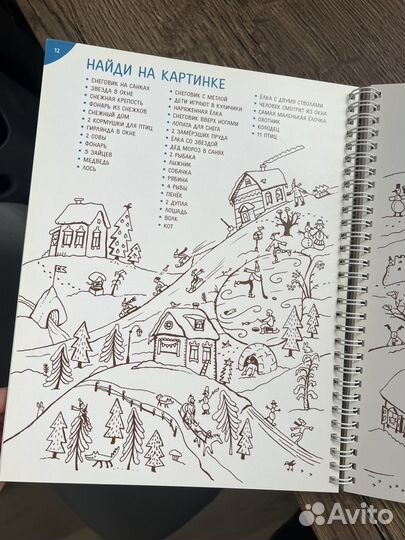 12
НАЙДИ НА КАРТИНКЕ
• СНЕГОВИК НА САНКАХ
• ЗВЕЗДА В ОКНЕ
• СНЕЖНАЯ КРЕПОСТЬ
• ФОНАРЬ ИЗ СНЕЖКОВ
• СНЕЖНЫЙ ДОМ
• 2 КОРМУШКИ ДЛЯ ПТИЦ
• ГИРЛЯНДА В ОКНЕ
• 2 СОВЫ
• ФОНАРЬ
• 5 ЗАЙЦЕВ
• МЕДВЕДЬ
• ЛОСЬ
• СНЕГОВИК С МЕТЛОЙ
• ДЕТИ ИГРАЮТ В КУЛИЧИКИ
• НАРЯЖЕННАЯ ЁЛКА
• СНЕГОВИК ВВЕРХ НОГАМИ
• ЛОПАТА ДЛЯ СНЕГА
• 2 ЗАМЁРЗШИХ ПРУДА
• ЁЛКА СО ЗВЕЗДОЙ
• ДЕД МОРОЗ В САНЯХ
• 2 РЫБАКА
• ЛЫЖНИК
• СОБАЧКА
• РЯБИНА
• 4 РЫБЫ
• ПЕНЁК
• 2 ДУПЛА
• ЛОШАДЬ
• ВОЛК
• КОТ
• ЁЛКА С ДВУМЯ СТВОЛАМИ
• ЧЕЛОВЕК СМОТРИТ ИЗ ОКНА
• САМАЯ МАЛЕНЬКАЯ ЁЛОЧКА
• ОХОТНИК
• КОЛОДЕЦ
• 11 ПТИЦ
Avito